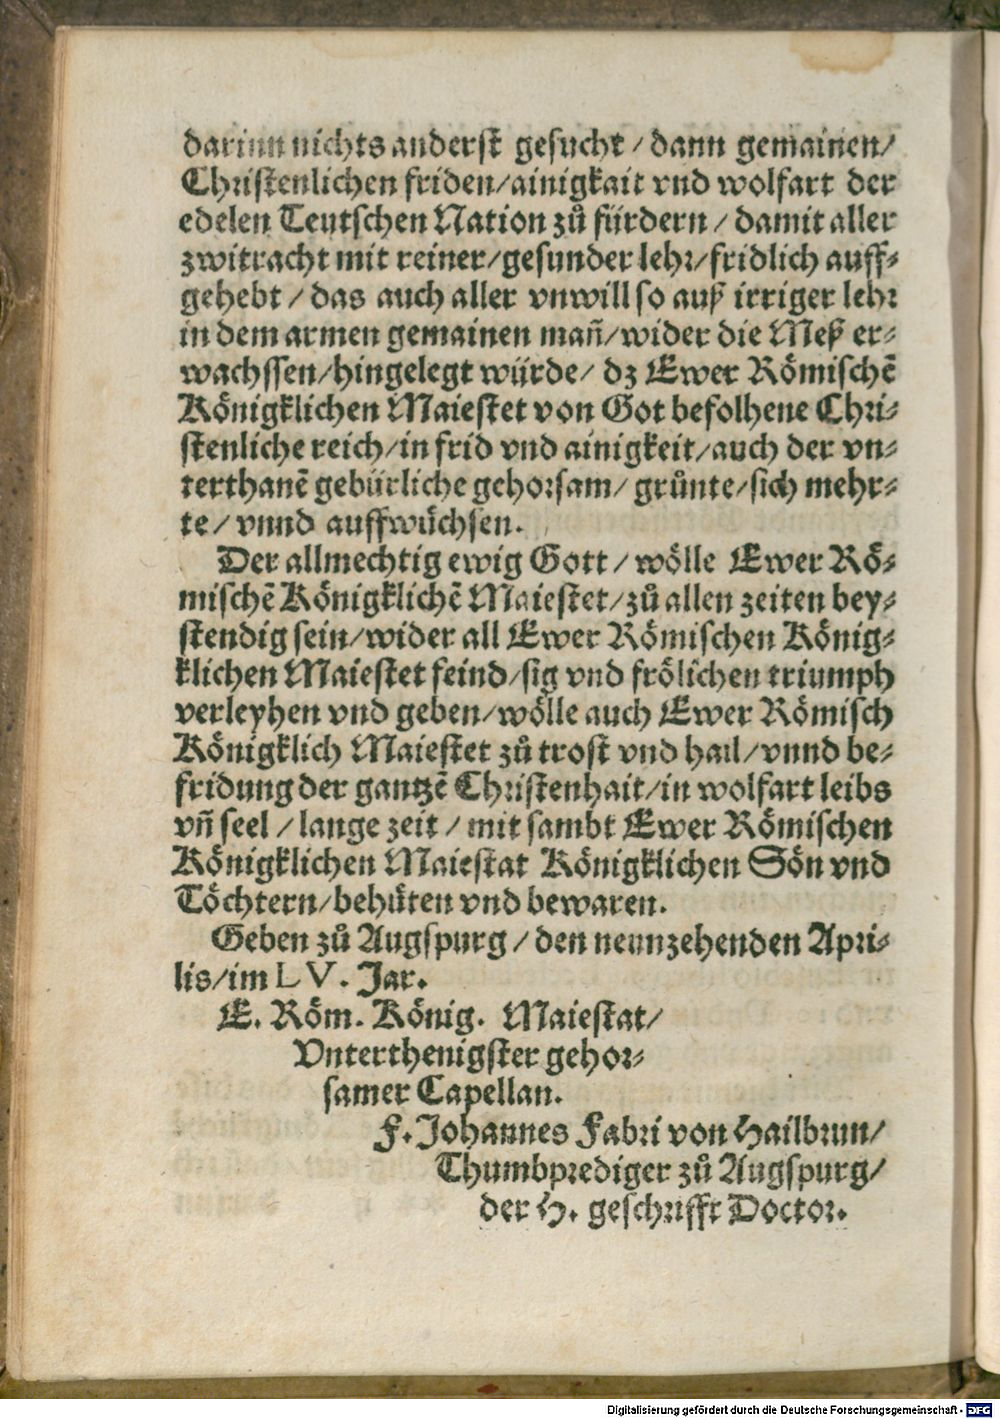 darinn nichts anderst gesucht / dann gemainen/
Christenlichen friden/ainigkait vnd wolfart der
edelen Teutschen Nation zů fürdern / damit aller
zwitracht mit reiner/gesunder lehr/fridlich auff⸗
gehebt / das auch aller vnwill so auß irriger lehr
in dem armen gemainen mañ/wider die Meß er⸗
wachssen/hingelegt würde/ dz Ewer Römischē
Königklichen Maiestet von Got befolhene Chri⸗
stenliche reich/in frid vnd ainigkeit/auch der vn⸗
terthanē gebürliche gehorsam/ grůnte/sich mehr⸗
te/ vnnd auffwüchsen.
Der allmechtig ewig Gott/ wölle Ewer Rö⸗
mischē Königklichē Maiestet/zů allen zeiten bey⸗
stendig sein/wider all Ewer Römischen König⸗
klichen Maiestet feind/sig vnd frölichen triumph
verleyhen vnd geben/wölle auch Ewer Römisch
Königklich Maiestet zů trost vnd hail/vnnd be⸗
fridung der gantzē Christenhait/in wolfart leibs
vñ seel / lange zeit / mit sambt Ewer Römischen
Königklichen Maiestat Königklichen Sön vnd
Töchtern/behüten vnd bewaren.
Geben zů Augspurg / den neunzehenden Apri⸗
lis/im LV. Jar.
E. Röm. König. Maiestat/
Vnterthenigster gehor⸗
samer Capellan.
F. Johannes Fabri von Hailbrun/
Thumbprediger zů Augspurg/
der H. geschrifft Doctor.
Digitalisierung gefördert durch die Deutsche Forschungsgemeinschaft - DFG